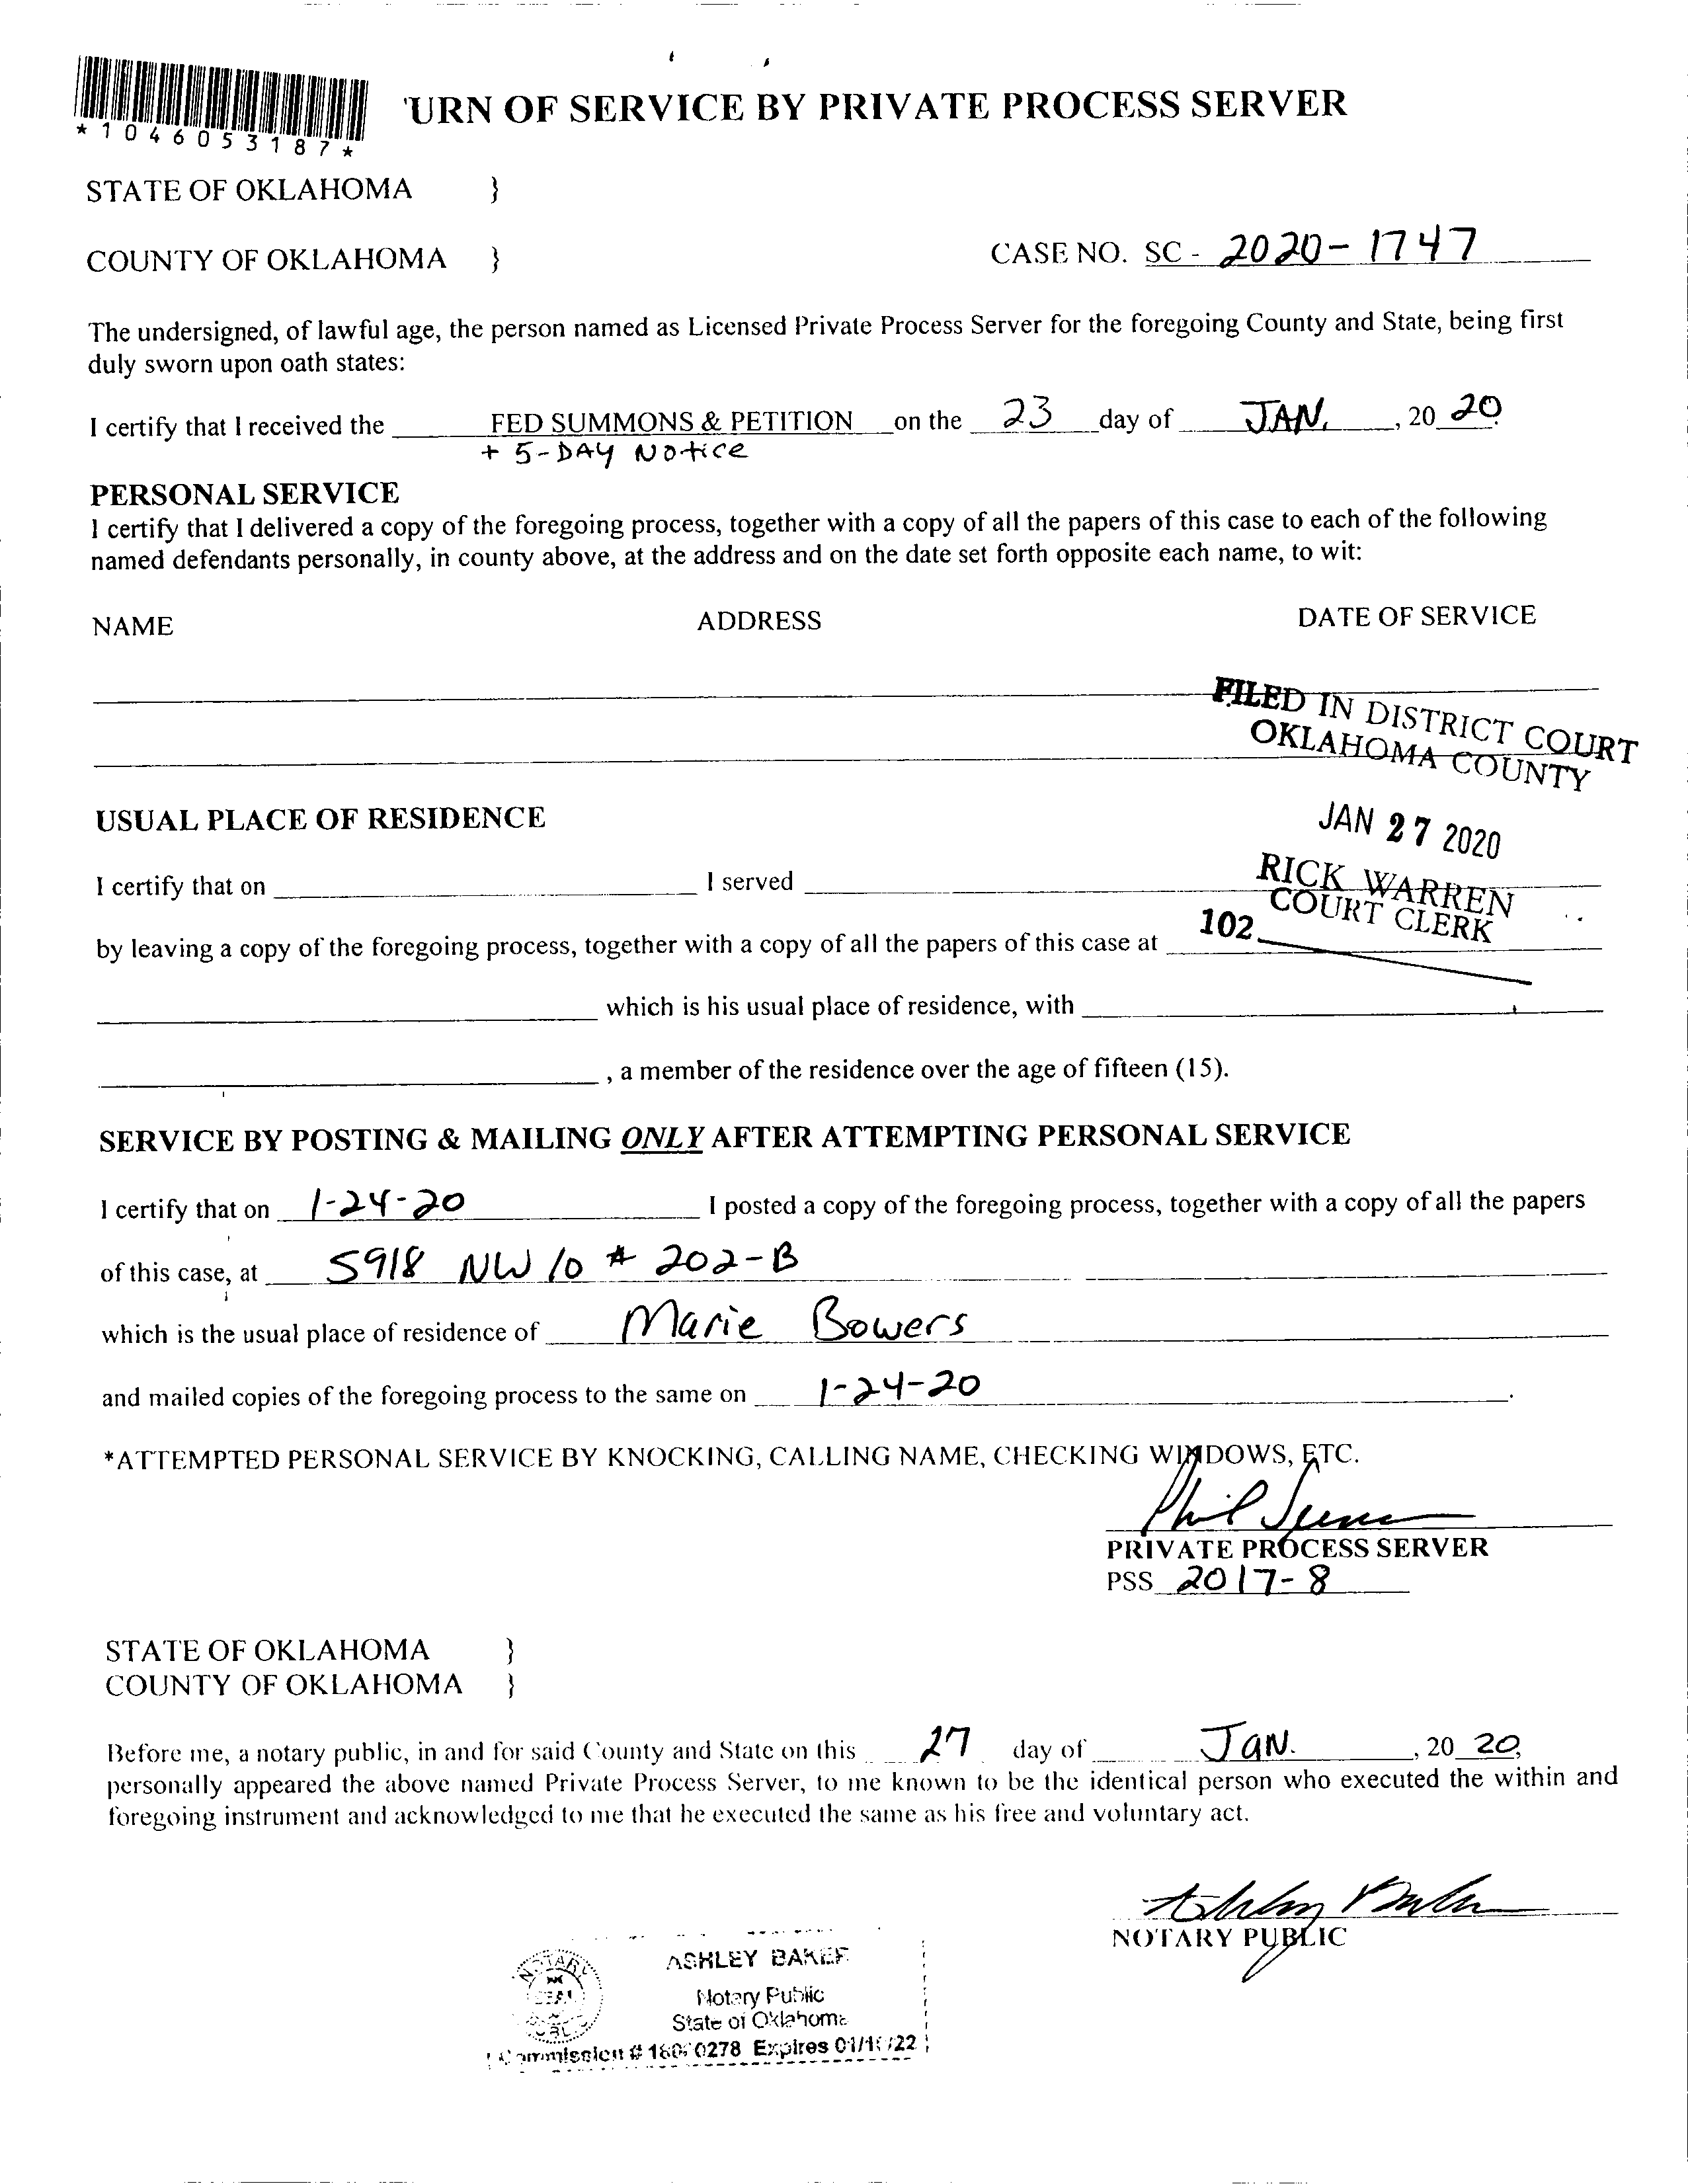 'URN OF SERVICE BY PRIVATE PROCESS SERVER
*1046053187*
STATE OF OKLAHOMA }
COUNTY OF OKLAHOMA } CASE NO. SC - 2020-1747
The undersigned, of lawful age, the person named as Licensed Private Process Server for the foregoing County and State, being first
duly sworn upon oath states:
I certify that I received the FED SUMMONS & PETITION on the 23 day of JAN. , 20 20.
+ 5-DAY Notice
PERSONAL SERVICE
I certify that I delivered a copy of the foregoing process, together with a copy of all the papers of this case to each of the following
named defendants personally, in county above, at the address and on the date set forth opposite each name, to wit:
NAME ADDRESS DATE OF SERVICE
FILED IN DISTRICT COURT
OKLAHOMA COUNTY
JAN 27 2020
RICK WARREN
COURT CLERK
102
USUAL PLACE OF RESIDENCE
I certify that on I served
by leaving a copy of the foregoing process, together with a copy of all the papers of this case at
which is his usual place of residence, with
, a member of the residence over the age of fifteen (15).
SERVICE BY POSTING & MAILING ONLY AFTER ATTEMPTING PERSONAL SERVICE
I certify that on 1-24-20 I posted a copy of the foregoing process, together with a copy of all the papers
of this case, at 5918 NW 10 # 202-B
which is the usual place of residence of Marie Bowers
and mailed copies of the foregoing process to the same on 1-24-20 .
*ATTEMPTED PERSONAL SERVICE BY KNOCKING, CALLING NAME, CHECKING WINDOWS, ETC.
Phil
PRIVATE PROCESS SERVER
PSS 2017-8
STATE OF OKLAHOMA }
COUNTY OF OKLAHOMA }
Before me, a notary public, in and for said County and State on this 27 day of JAN. , 20 20,
personally appeared the above named Private Process Server, to me known to be the identical person who executed the within and
foregoing instrument and acknowledged to me that he executed the same as his free and voluntary act.
Ashley Baker
NOTARY PUBLIC
ASHLEY BAKER
Notary Public
State of Oklahoma
Commission # Expires